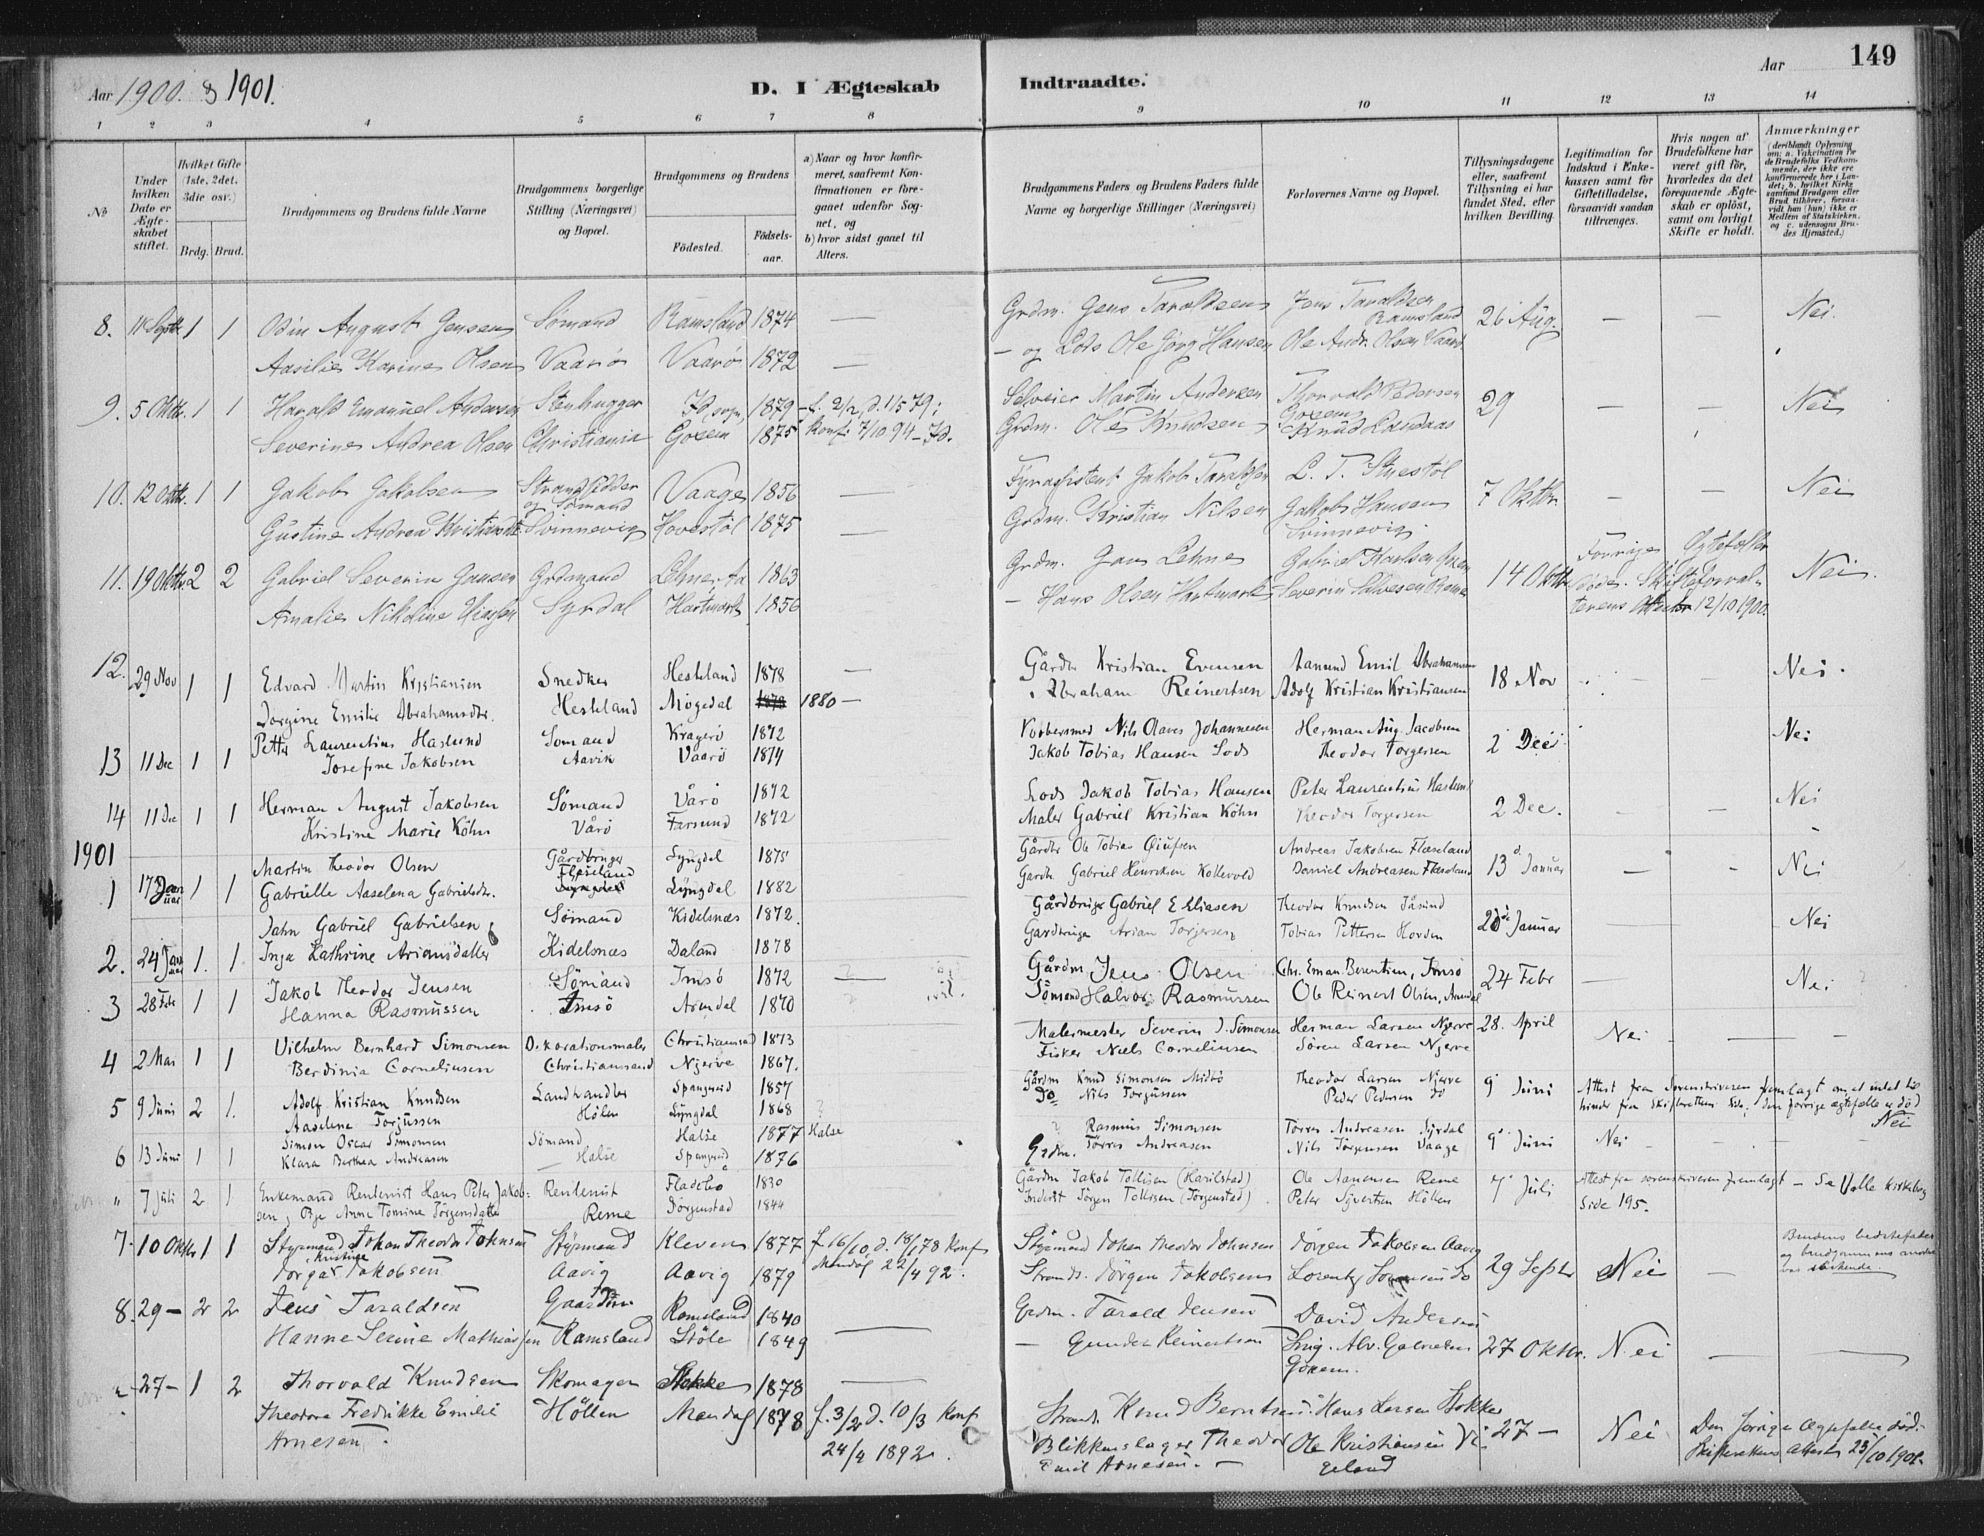 149
Aar 1900. & 1901.
D. I Ægteskab Indtraadte.
Aar
1 2 3 4 5 6 7 8 9 10 11 12 13 14
No
Under hvilken Dato er Ægteskabet stiftet.
Hvilket Gifte (1ste, 2det, 3die osv.)
Brdg. Brud.
Brudgommens og Brudens fulde Navne
Brudgommens borgerlige Stilling (Næringsvei) og Bopæl.
Brudgommens og Brudens
Fødested. Fødsels-aar.
a) Naar og hvor konfirmeret, saafremt Konfirmationen er foregaaet udenfor Sognet, og
b) hvor sidst gaaet til Alters.
Brudgommens Faders og Brudens Faders fulde Navne og borgerlige Stillinger (Næringsvei)
Forlovernes Navne og Bopæl.
Tillysningsdagene eller, saafremt Tillysning ei har fundet Sted, efter hvilken Bevilling.
Legitimation for Indskud i Enkekassen samt for Giftetilladelse, forsaavidt saadan tiltrænges.
Hvis nogen af Brudefolkene har været gift før, hvorledes da det foregaaende Ægteskab er opløst, samt om lovligt Skifte er holdt.
Anmærkninger
8. 11 Septb. 1 1 Odin August Jensen Sømand Ramsland 1874 — Grdm. Jens Taraldsen Jens Taraldsen Ramsland 26 Aug. — — Nei.
Aasilie Karine Olsen Vaarø Vaarø 1872 — — og Lods Ole Jørg Hansen Ole Andr. Olsen Vaarø
9. 5 Oktbr. 1 1 Harald Emanuel Andersen Stenhugger Id sogn, 1879 f. 2/2, d. 11/5 79; Selveier Martin Andersen Thorvald Pedersen Goxem 29 — — Nei
Severine Andrea Olsen Christiania Goxem 1875 Konf. 7/10 94 - Id. Grdm. Ole Knudsen Knud Landaas
10. 12 Oktbr. 1 1 Jakob Jakobsen Strandsidder og Sømand Vaage 1856 — Fyrassistent Jakob Taraldsen L. T. Stuestøl 7 Oktbr. — — Nei
Gustine Andrea Kristiansdt. Svinnevig Hovestøl 1875 — Grdm. Kristian Nilsen Jakob Hansen Svinnevig.
11. 19 Oktbr. 2 2 Gabriel Severin Jansen Grdmand Lehne 1863 Grdm. Jans Lehne Gabriel 14 Oktbr. Forrige Ægtefæller døde. Skifteforvalterens Attester 12/10 1900. Nei.
Amalie Nikoline Syrdal Hartmark 1856 — Hans Olsen Hartmark Severin Salvesen
12. 29 Nov 1 1 Edvard Martin Kristiansen Snedker Heskland 1878 — Gårdbr Kristian Evensen Aanund Emil Abrahamsen 18 Nov Nei.
Jorgine Emilie Abrahamsdtr. Heskland Møgedal 1878 1880 — Abraham Reinertsen Adolf Kristian Kristiansen
13 11 Dec 1 1 Petter Laurentius Haslund Sømand Kragerø 1872 Kobbersmed Nils Olaves Johannesen Herman Aug. Jacobsen 2 Dec Nei
Josefine Jakobsen Aavik Vaarø 1874 Jakob Tobias Hansen Lods Theodor Torgersen
14 11 Dec 1 1 Herman August Jakobsen Sømand Vårø 1872 Lods Jakob Tobias Hansen Peter Laurentius Haslund 2 Dec. — Nei
Kristine Marie Köhn Vårø Farsund 1872 Maler Gabriel Kristian Köhn Theodor Torgersen
1901
1 17 Januar 1 1 Martin Theodor Olsen Gårdbruger Lyngdal 1875 Gårdbr Ole Tobias Andreas Jakobsen Flæseland 13 Januar — — Nei
Gabrielle Aaselena Gabrielsdtr. Lyngdal 1882 Gardb. Gabriel Henriksen Kollevold Daniel Andreasen Flæseland
2. 24 Januar 1. 1 Jahn Gabriel Gabrielsen Sømand Kidelsnæs 1872. Gårdbruger Gabriel Elliasen Theodor Knudsen Jåsund 20 Januar — Nei
Inga Kathrine Ariansdatter Kidelsnæs Daland 1878 Gardbruger Arian Torjersen Tobias Pettersen Horden
3 28 Feb 1 1 Jakob Theodor Jensen Sømand Imsø 1872 Gårdm Jens Olsen Chr. Eman. Berentsen, Imsø 24 Febr — Nei
Hanna Rasmussen Imsø Arendal 1870 Sömand Halvor Rasmussen Ole Reinert Olsen, Arendal
4 2 Mai 1 1 Vilhelm Bernhard Simonsen Dekorationsmaler Christiansand 1873 Malermester Severin J. Simonsen Herman Larsen Njerve 28. April Nei — —
Berdinia Corneliusen Christiansand Njerve 1867. Fisker Niels Corneliusen Søren Larsen Njerve
5 9 Juni 2 1. Adolf Kristian Knudsen Landhandler Spangereid 1857 Gårdm Knud Simonsen Midbö Theodor Larsen Njerve 9 Juni Attest fra Sorenskriveren fremlagt om at intet til hinder fra Skifterettens Side. Den forrige ægtefælle er död
Aaselene Torjussen Hølen Lyngdal 1868 Do. Nils Torjussen Peder Pedersen Do Nei
6 13 Juni 1 1 Simon Oscar Simonsen Sömand Halse 1877 Halse Rasmus Simonsen Torres Andreasen Syrdal 9 Juni Nei - - -
Klara Berthea Andreasen — Halse Spangereid 1876 Grdm. Torres Andreasen Nils Jörgensen Vaage
" 7 Juli 2 1 Enkemand Rentenist Hans Peter Jakobsen, Pige Anne Tomine Jörgensdatter Rentenist Reme Fladebø 1830 Gårdm Jakob Tollisen (Harilstad) Ole Aanensen Reme 7 Juli Attest fra sorenskriveren fremlagt — Se Valle kirkebog Side 195.
Jörgenstad 1844 Inderst Jörgen Tollisen (Jörgenstad) Peter Syvertsen Hölken
7. 10 Oktbr 1 1 Styrmand Johan Theodor Johnsen Styrmand Kleven 1877 f. 16/10, d. 18/11 78 Konf Mandal 22/4 92. Styrmand Johan Theodor Johnsen Jörgen Jakobsen Aavig 29 Septbr Nei — Brudens bedstefader og brudgommens
Jakobsen Aavig Aavig 1879 Strands. Jörgen Jakobsen Lorentz Do
8. 29 — 2 2 Jens Taraldsen Gaardm Ramsland 1840 Grdm. Tarald Jensen David Andersen 27 Oktbr. Nei — —
Hanne Serine Mathiassen Ramsland Støle 1849 — Gunder Reinertsen Goxem.
27 — 1 2 Thorvald Knudsen Skomager Stokke 1878 — Strands. Knud Berntsen Hans Larsen Stokke 27 — Nei Den forrige Ægtefælle död. Skifterettens Attest 23/10 1901.
Theodora Fredrikke Emilie Arnesen. Høllen Mandal 1878 f. 3/2 d. 10/3 Konf 24/4 1892. Blikkenslager Theodor Emil Arnesen. — Ole Kristiansen